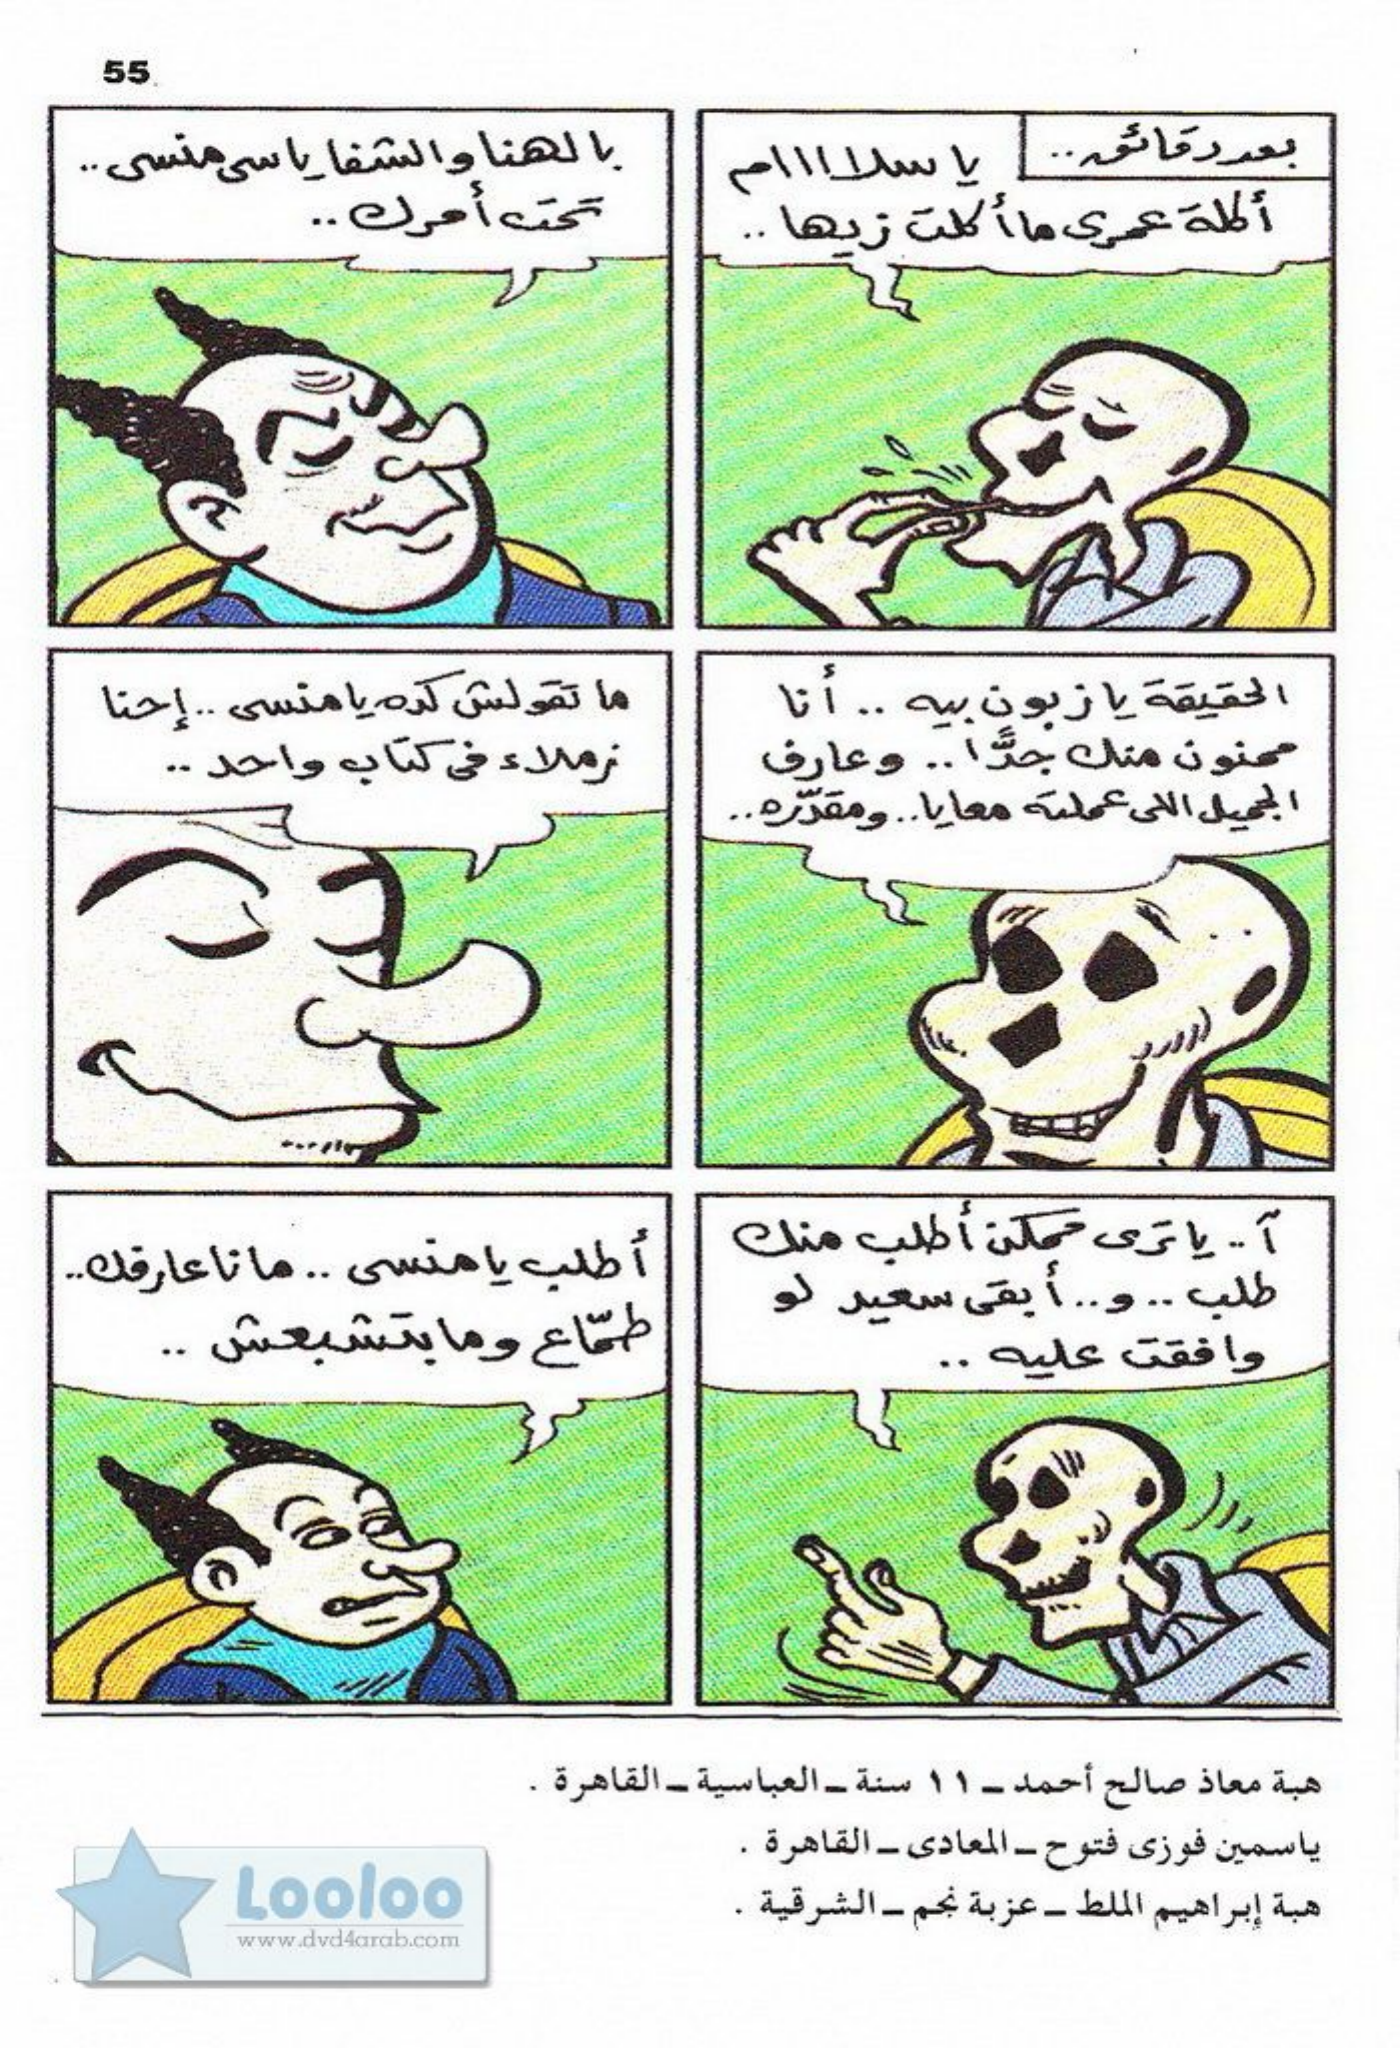 55
بعد دقائق..
يا سلاااام
أكلة عمرى ما أكلت زيها ..
بالهنا والشفا يا سى منسى ..
تحت أمرك ..
الحقيقة يا زبون بيه .. أنا
ممنون منك جدًّا .. وعارف
الجميل اللى عملته معايا.. ومقدّره..
ما تقولش كده يا منسى .. إحنا
زملاء فى كتاب واحد ..
آ .. يا ترى ممكن أطلب منك
طلب .. و.. أبقى سعيد لو
وافقت عليه ..
أطلب يا منسى .. ما نا عارفك..
طمّاع وما بتشبعش ..
هبة معاذ صالح أحمد ــ ١١ سنة ــ العباسية ــ القاهرة .
ياسمين فوزى فتوح ــ المعادى ــ القاهرة .
هبة إبراهيم الملط ــ عزبة نجم ــ الشرقية .
Looloo
www.dvd4arab.com